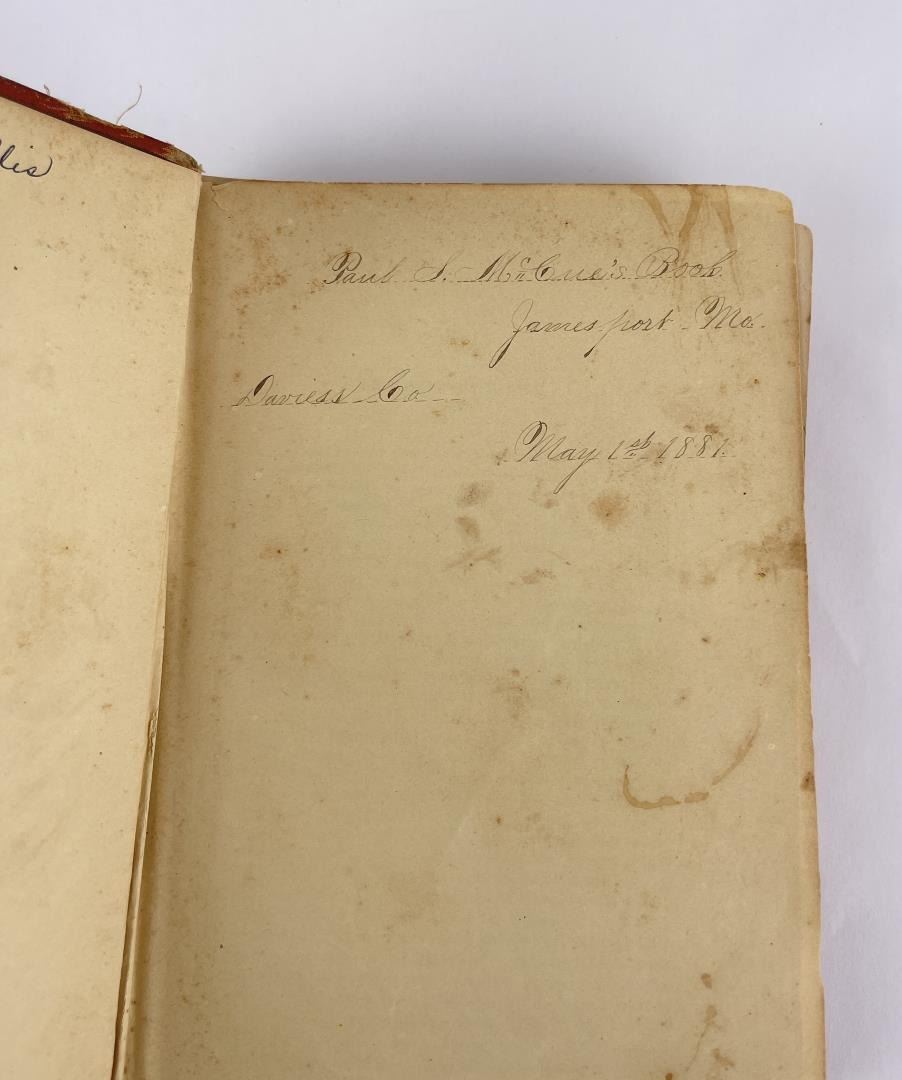 Paul S. McCue's Book
Jamesport Mo.
Daviess Co
May 1st 1881.